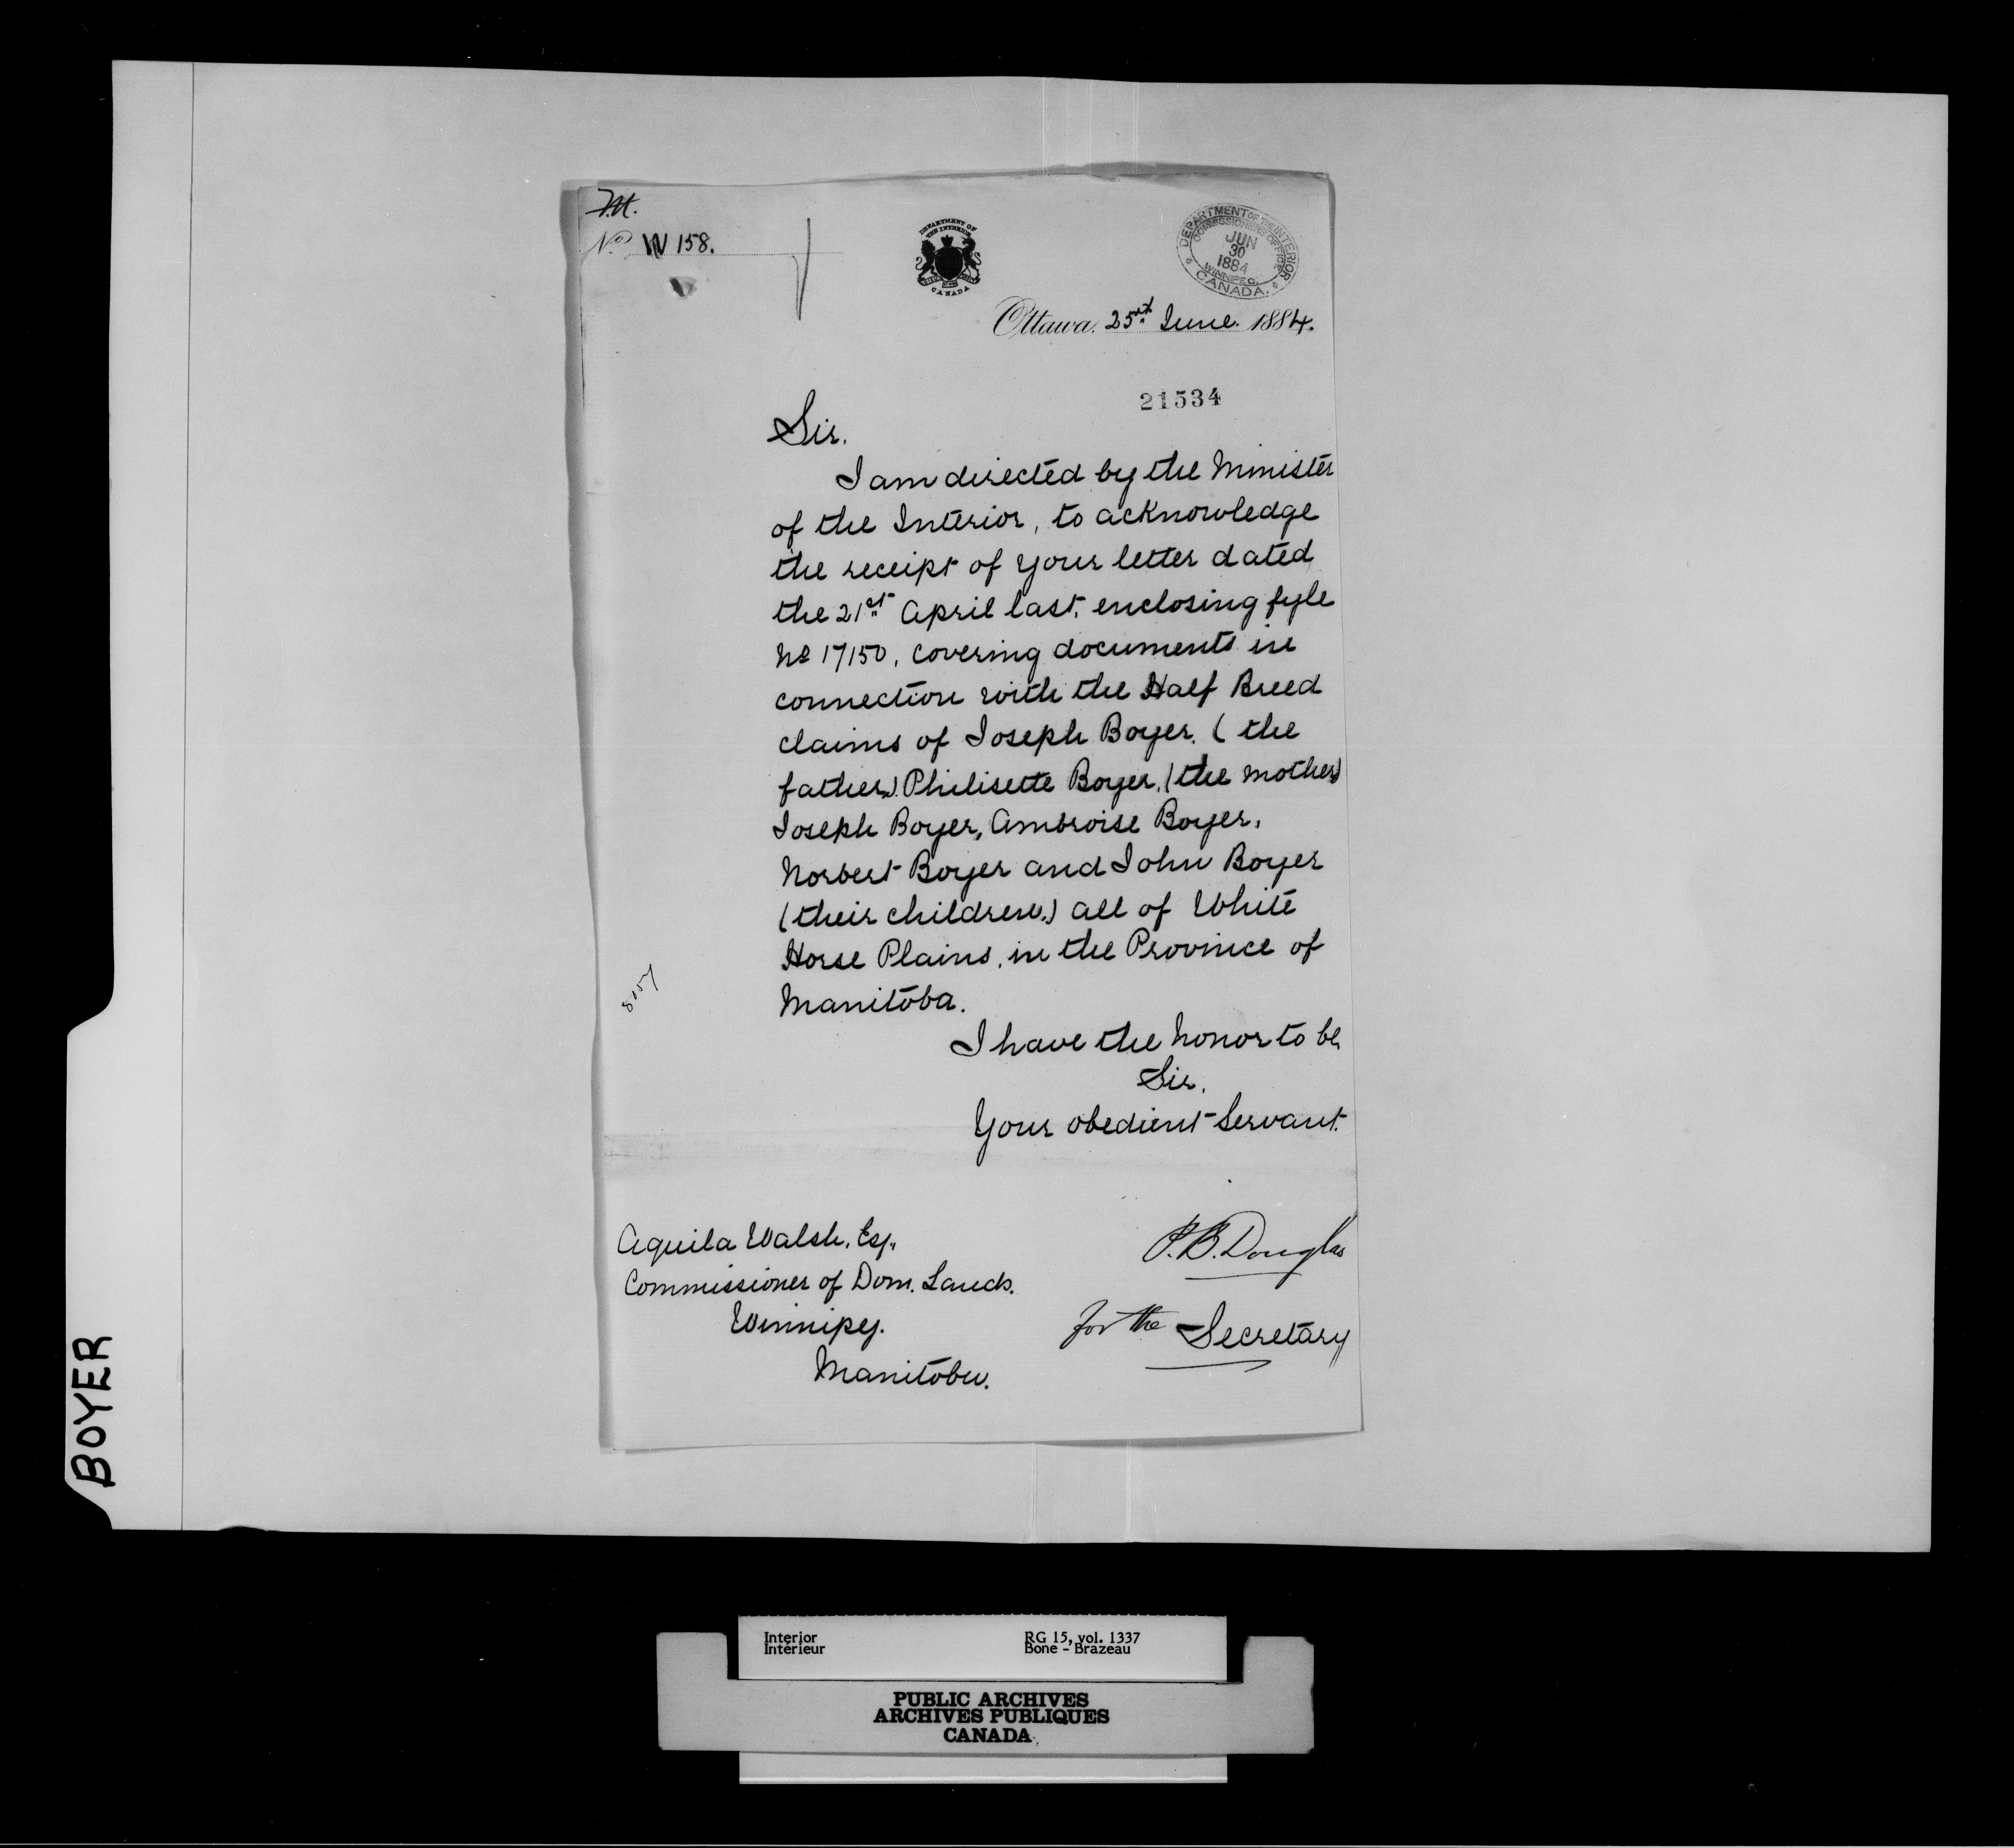 F.M.
No. W 158.
DEPARTMENT OF
THE INTERIOR
CANADA
DEPARTMENT OF THE INTERIOR
COMMISSIONERS OFFICE
JUN
30
1884
WINNIPEG.
CANADA.
Ottawa. 25th June. 1884.
21534
Sir.
I am directed by the Minister
of the Interior, to acknowledge
the receipt of your letter dated
the 21st April last, enclosing fyle
No 17150, covering documents in
connection with the Half Breed
claims of Joseph Boyer. (the
father,) Philisette Boyer, (the mother)
Joseph Boyer, Ambroise Boyer,
Norbert Boyer and John Boyer
(their children.) all of White
Horse Plains, in the Province of
Manitoba.
I have the honor to be,
Sir.
Your obedient Servant.
P. B. Douglas
for the Secretary
Aquila Walsh, Esq.,
Commissioner of Dom. Lands.
Winnipeg.
Manitoba.
BOYER
Interior
Intérieur
RG 15, vol. 1337
Bone - Brazeau
PUBLIC ARCHIVES
ARCHIVES PUBLIQUES
CANADA